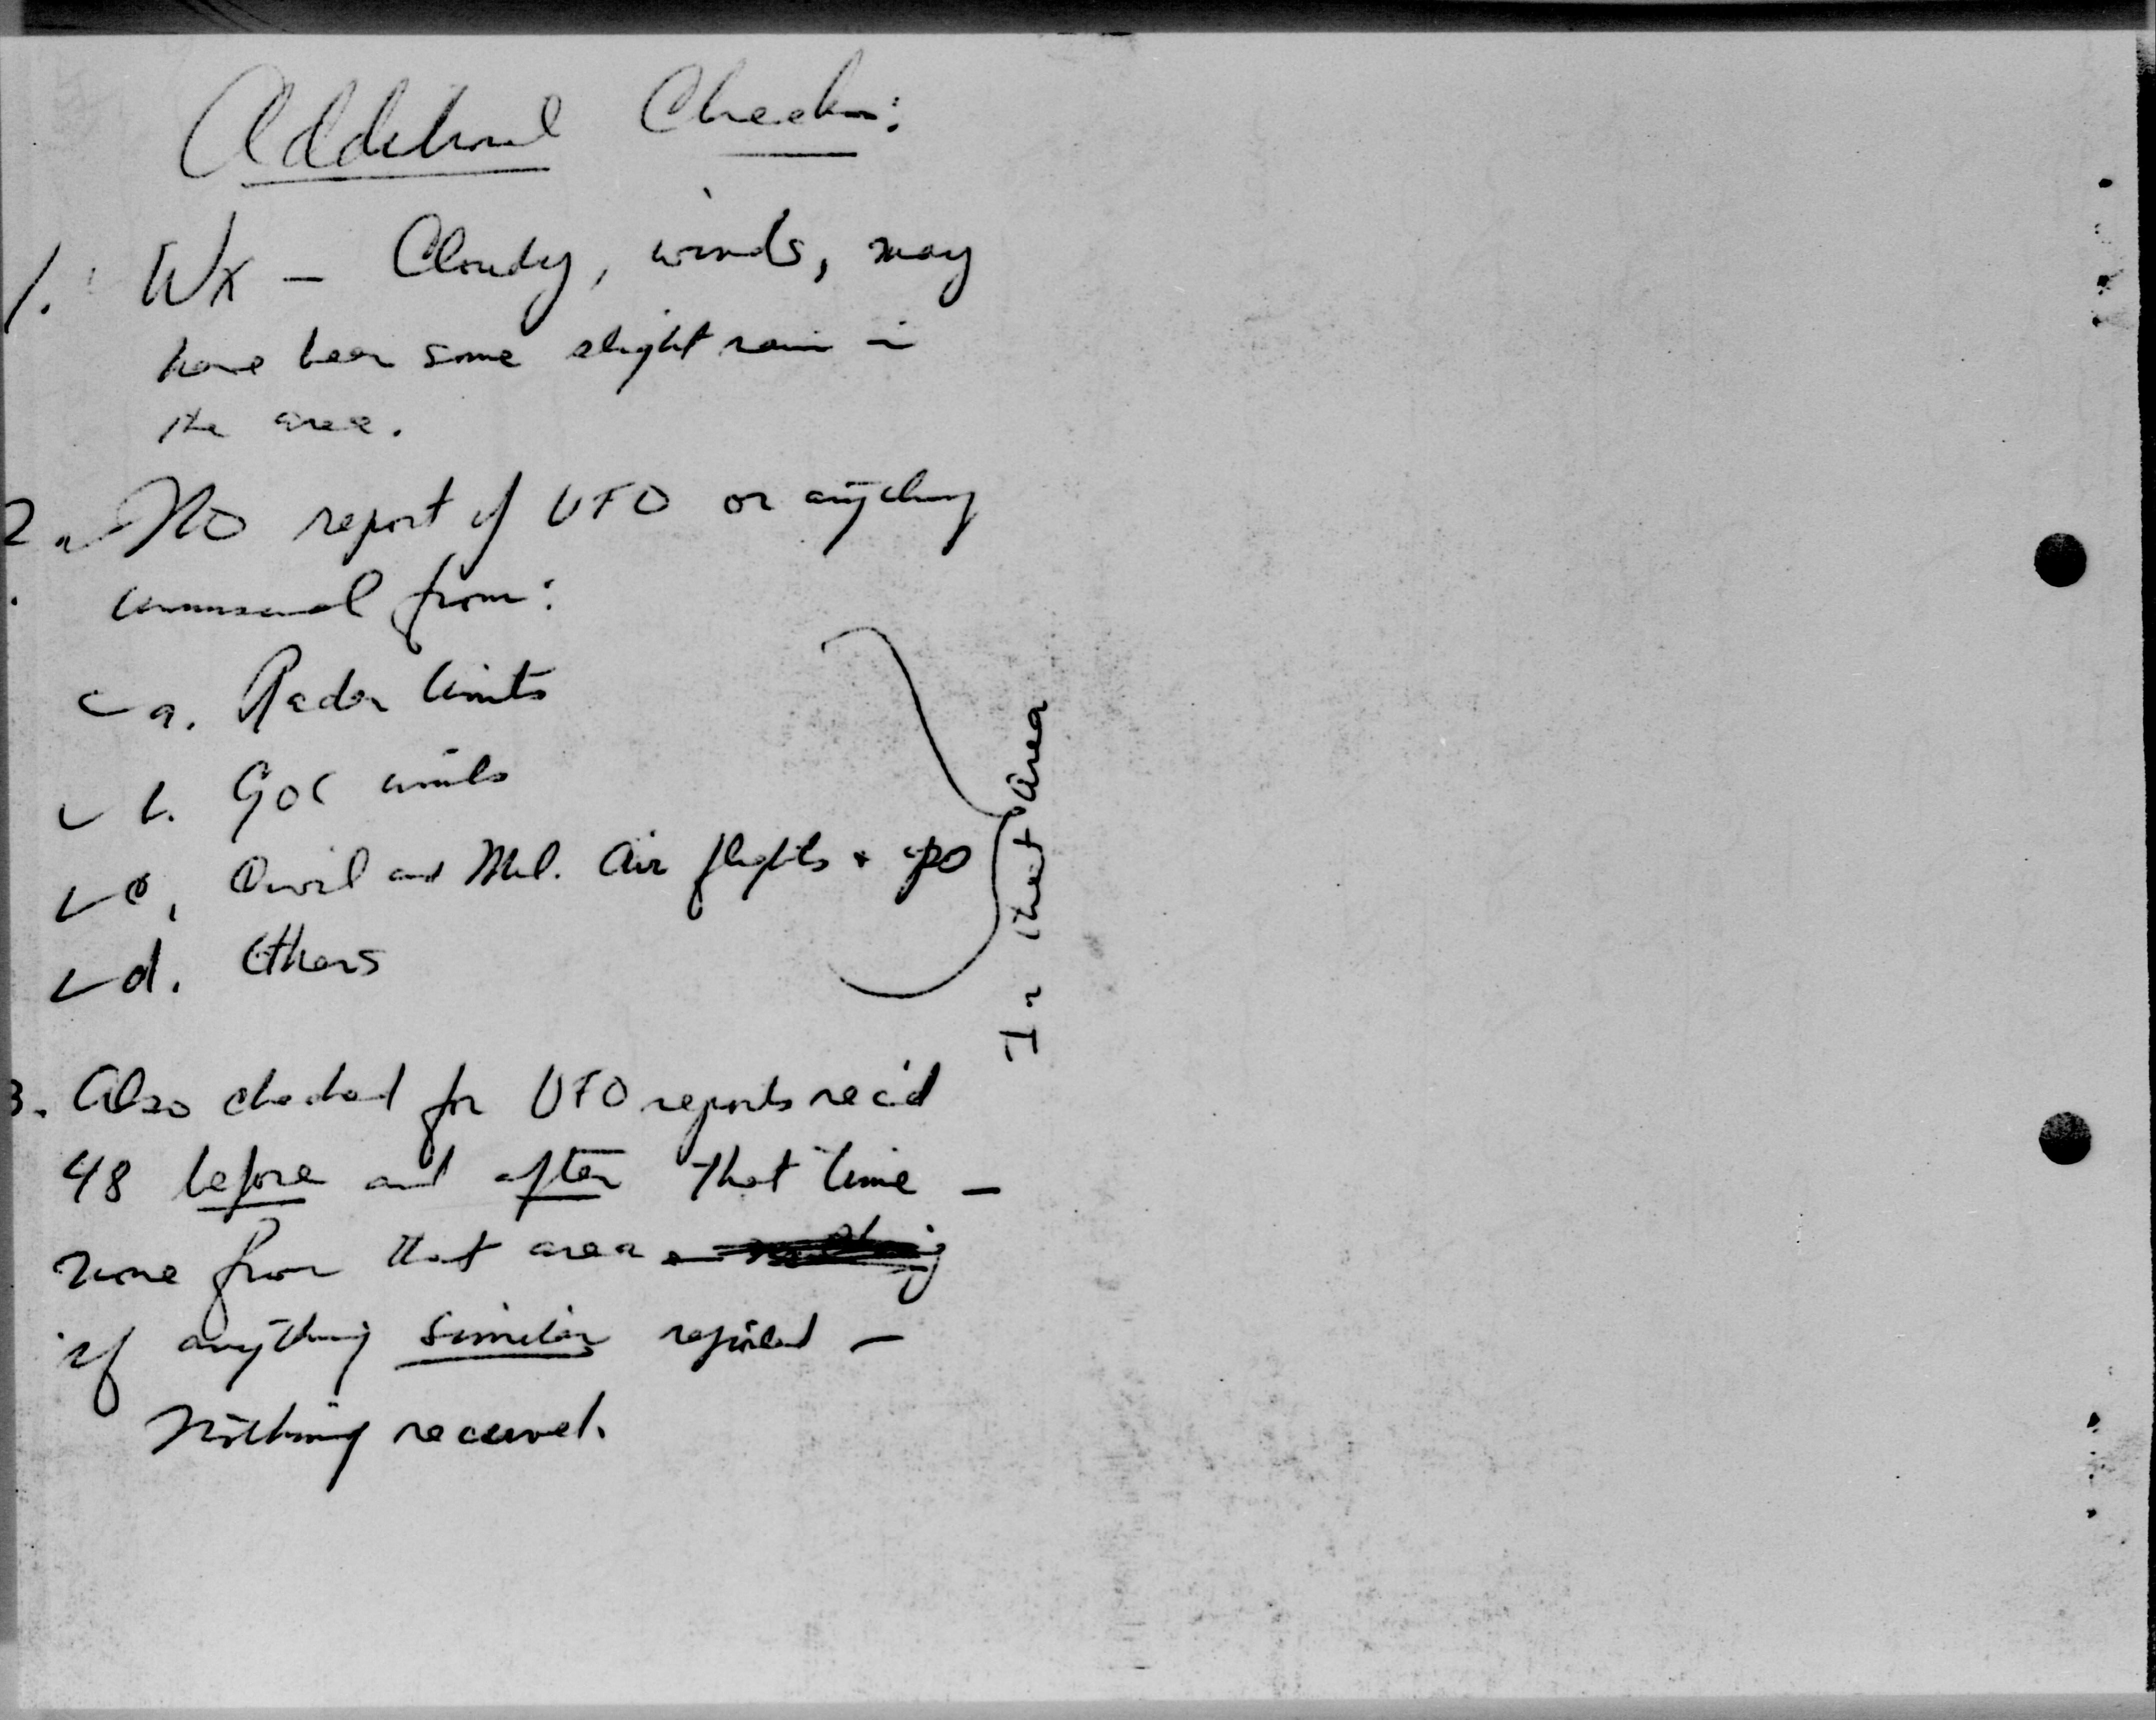 Additional Checks:
1. Wx – Cloudy, winds, may
have been some slight rain in
the area.
2. No report of UFO or anything
unusual from:
a. Radar Units
b. GOC units
c. Civil and Mil. Air flights +
d. Others
In that area
3. Also checked for UFO reports rec'd
48 before and after that time –
none from that area
if anything similar reported –
Nothing received.